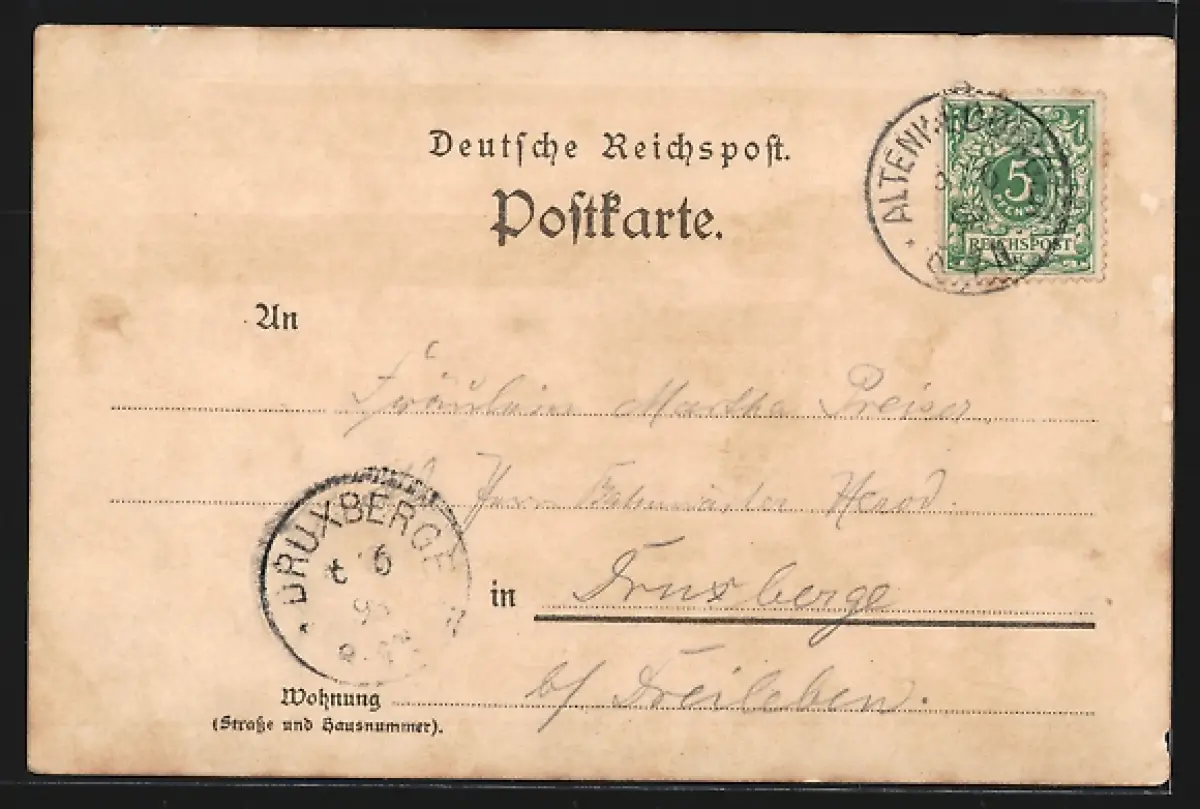 Deutsche Reichspost.
Postkarte.
5
REICHSPOST
An
Fräulein Martha Preiser
Herrn Bahnwärter Herod.
DRUXBERGE
in Druxberge
b/ Dreileben.
Wohnung
(Straße und Hausnummer).